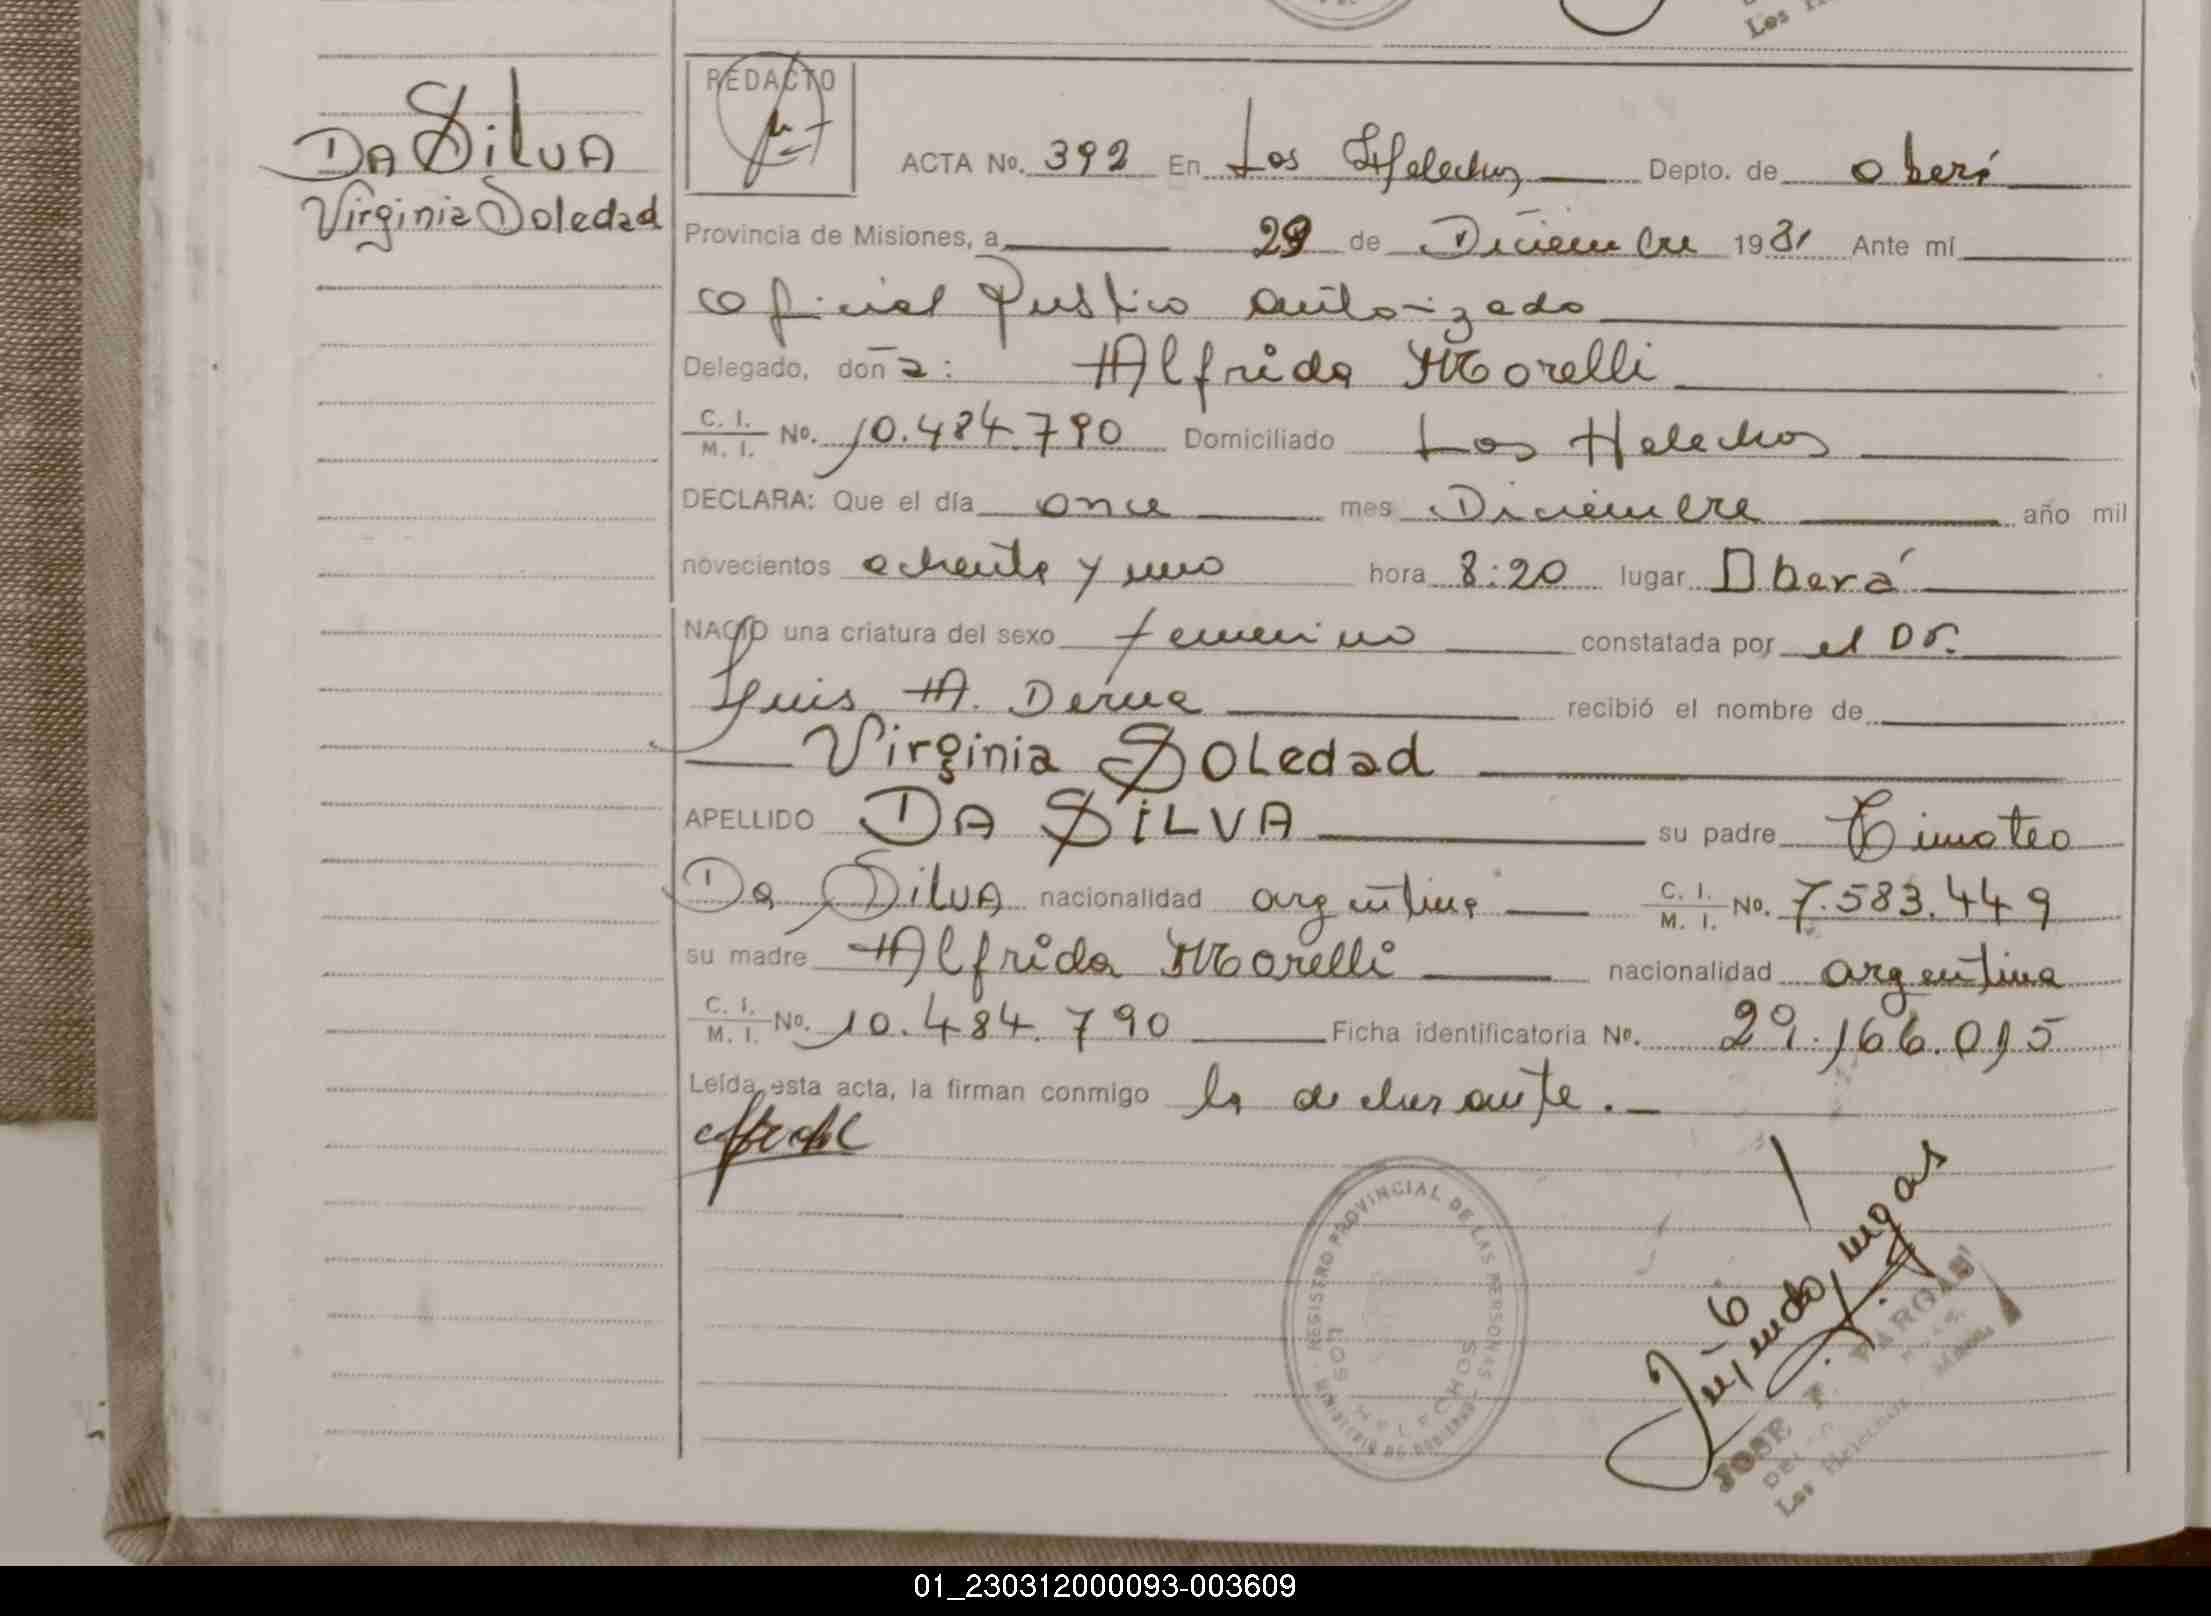 Los
REDACTO
DA SILVA
Virginia Soledad
ACTA No. 392 En Los Helechos Depto. de oberá
Provincia de Misiones, a 29 de Diciembre 1981 Ante mí
Oficial Publico Autorizado
Delegado, don̄a: Alfrida Morelli
C. I. / M. I. No. 10.484.790 Domiciliado Los Helechos
DECLARA: Que el día once mes Diciembre año mil
novecientos ochenta y uno hora 8:20 lugar Oberá
NACIO una criatura del sexo femenino constatada por el Dr.
Luis A. Derna recibió el nombre de
Virginia Soledad
APELLIDO DA SILVA su padre Timoteo
Da Silva nacionalidad argentina C. I. / M. I. No. 7.583.449
su madre Alfrida Morelli nacionalidad argentina
C. I. / M. I. No. 10.484.790 Ficha identificatoria No. 29.166.015
Leída esta acta, la firman conmigo la declarante.
REGISTRO PROVINCIAL DE LAS PERSONAS
LOS HELECHOS
JOSE F. VARGAS
Los Helechos
01_230312000093-003609